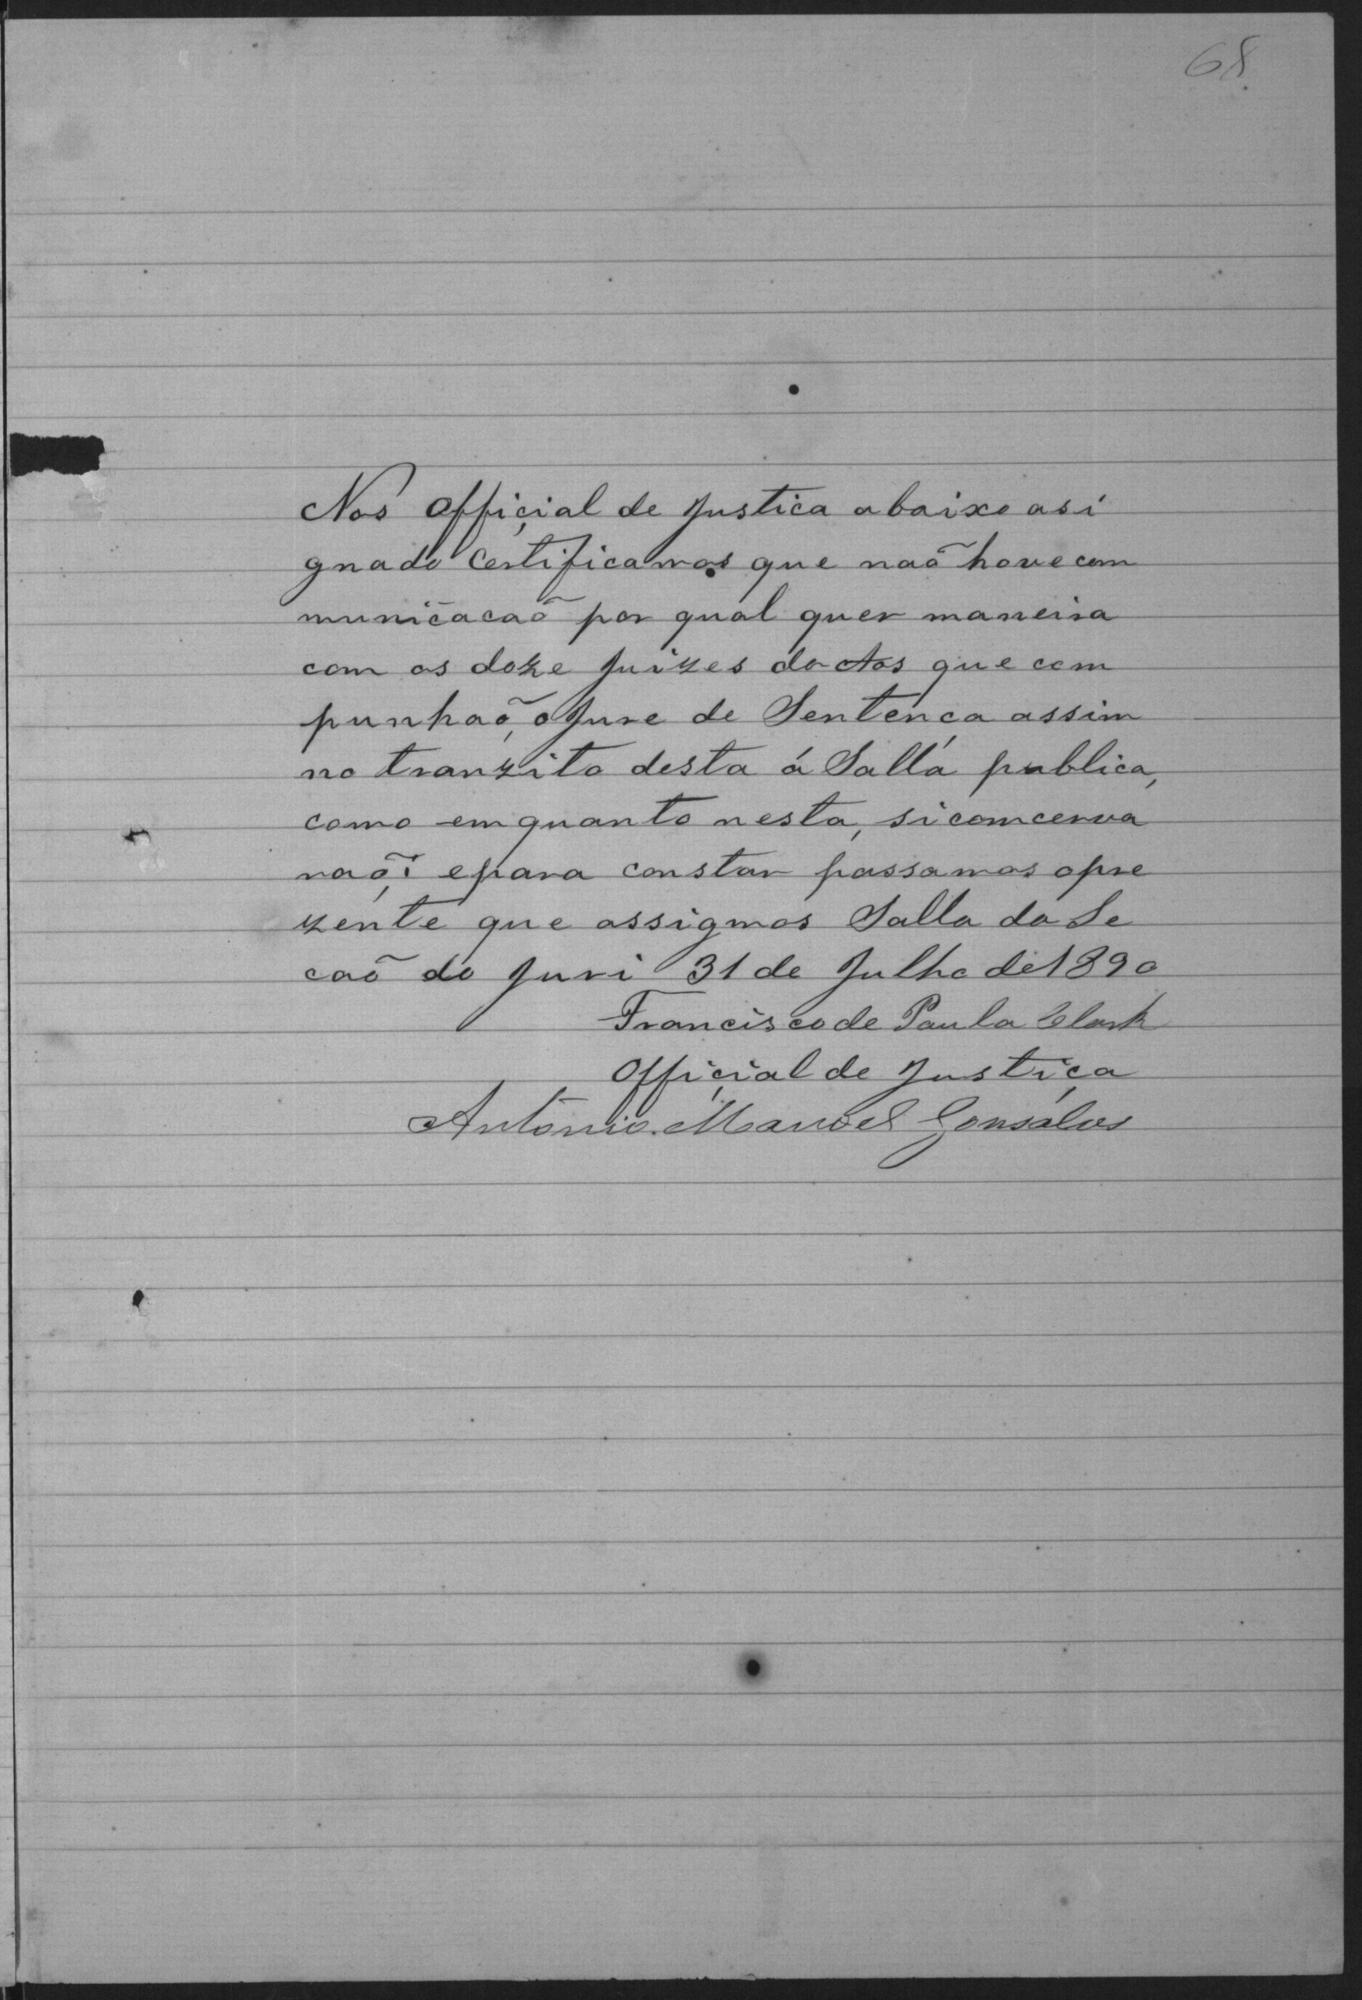 68
Nos Official de Justica abaixo asi
gnado Certificamos que naõ hove com
municacaõ por qual quer maneira
com os doze Juizes do Actos que com
punhaõ, o Jure de Sentenca assim
no tranzito desta á Salla publica,
como em quanto nesta, si comcerva
raõ; e para constar passamos o pre
zente que assigmos Salla da Se
caõ do Juri 31 de Julho de 1890
Francisco de Paula Clark
Official de Justiça
Antonio Manoel Gonsalves